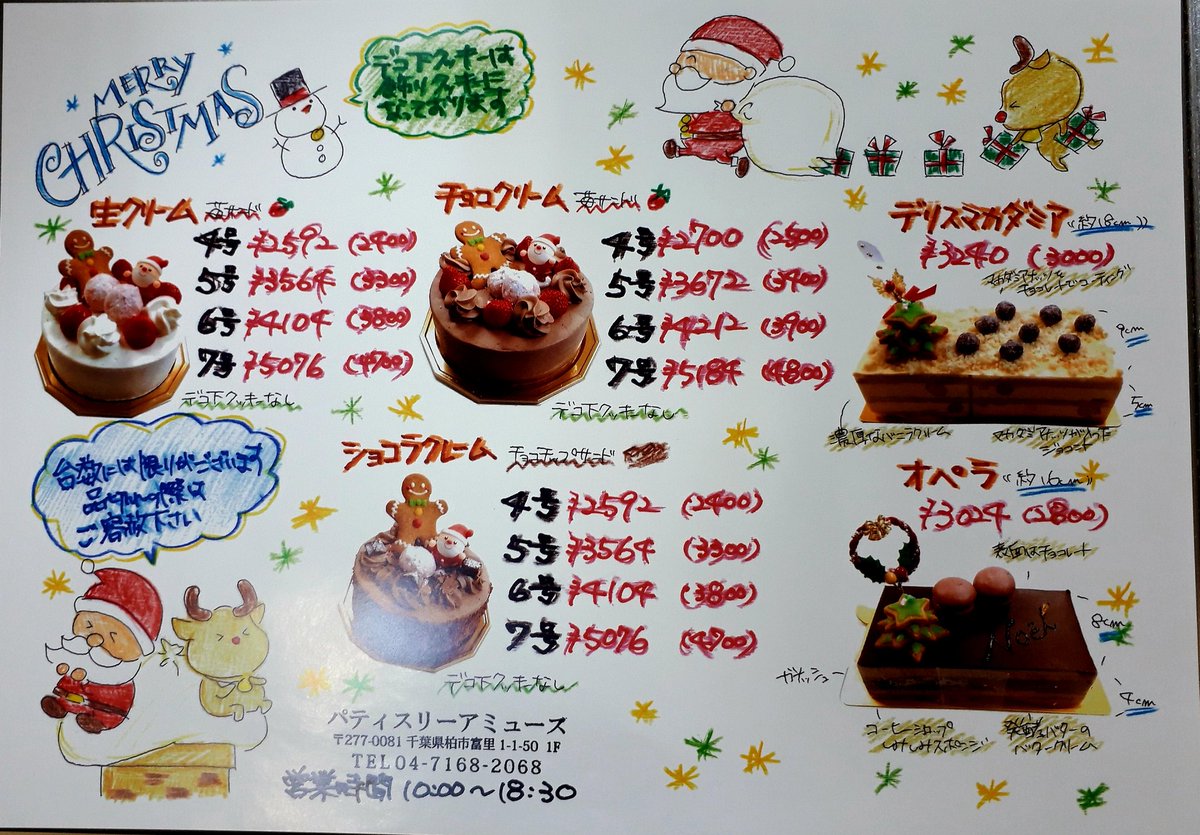 MERRY
CHRISTMAS
デコ下クッキーは
なっております
生クリーム 苺サンド
4号 ¥2592 (2400)
5号 ¥3564 (3300)
6号 ¥4104 (3800)
7号 ¥5076 (4700)
デコ下クッキーなし
チョコクリーム 苺サンド
4号 ¥2700 (2500)
5号 ¥3672 (3400)
6号 ¥4212 (3900)
7号 ¥5184 (4800)
デコ下クッキーなし
デリスマカダミア "約18cm"
¥3240 (3000)
マカダミアナッツを
チョコレートでコーティング
9cm
5cm
濃厚なバニラクリーム
マカダミアナッツが入った
ジョコンド
台数には限りがございます
品切れの際は
ご容赦下さい
ショコラクレーム チョコチップサンド
4号 ¥2592 (2400)
5号 ¥3564 (3300)
6号 ¥4104 (3800)
7号 ¥5076 (4700)
デコ下クッキーなし
オペラ "約16cm"
¥3024 (2800)
表面はチョコレート
Noël
8cm
4cm
ガナッシュ
コーヒーシロップ
しみしみスポンジ
発酵バターの
バタークリーム
パティスリーアミューズ
〒277-0081 千葉県柏市富里 1-1-50 1F
TEL 04-7168-2068
営業時間 10:00～18:30